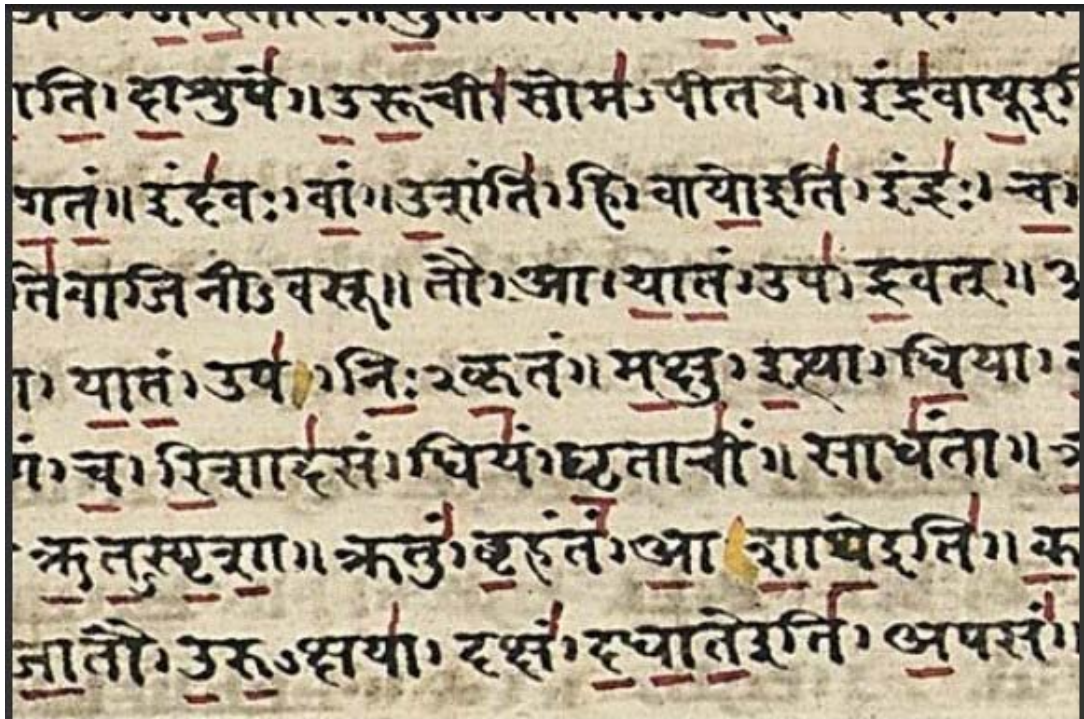 दाशुषे॥ उरूची। सोमऽपीतये॥ इंद्रवायूइति
गतं॥ इंदवः। वां॥ उशंति। हि। वायोइति। इंद्रः। च।
तिवाजिनीऽवसू॥ तौ। आ। यातं। उप। द्रवत्॥
यातं। उप। निःऽकृतं॥ मक्षु। इत्था। धिया।
च। रिशादसं। धियं। घृताचीं॥ साधंता॥
ऋतऽस्पृशा॥ क्रतुं। बृहंतं। आशाथेइति॥
जातौ। उरुऽक्षया। दक्षं। दधातेइति। अपसं॥